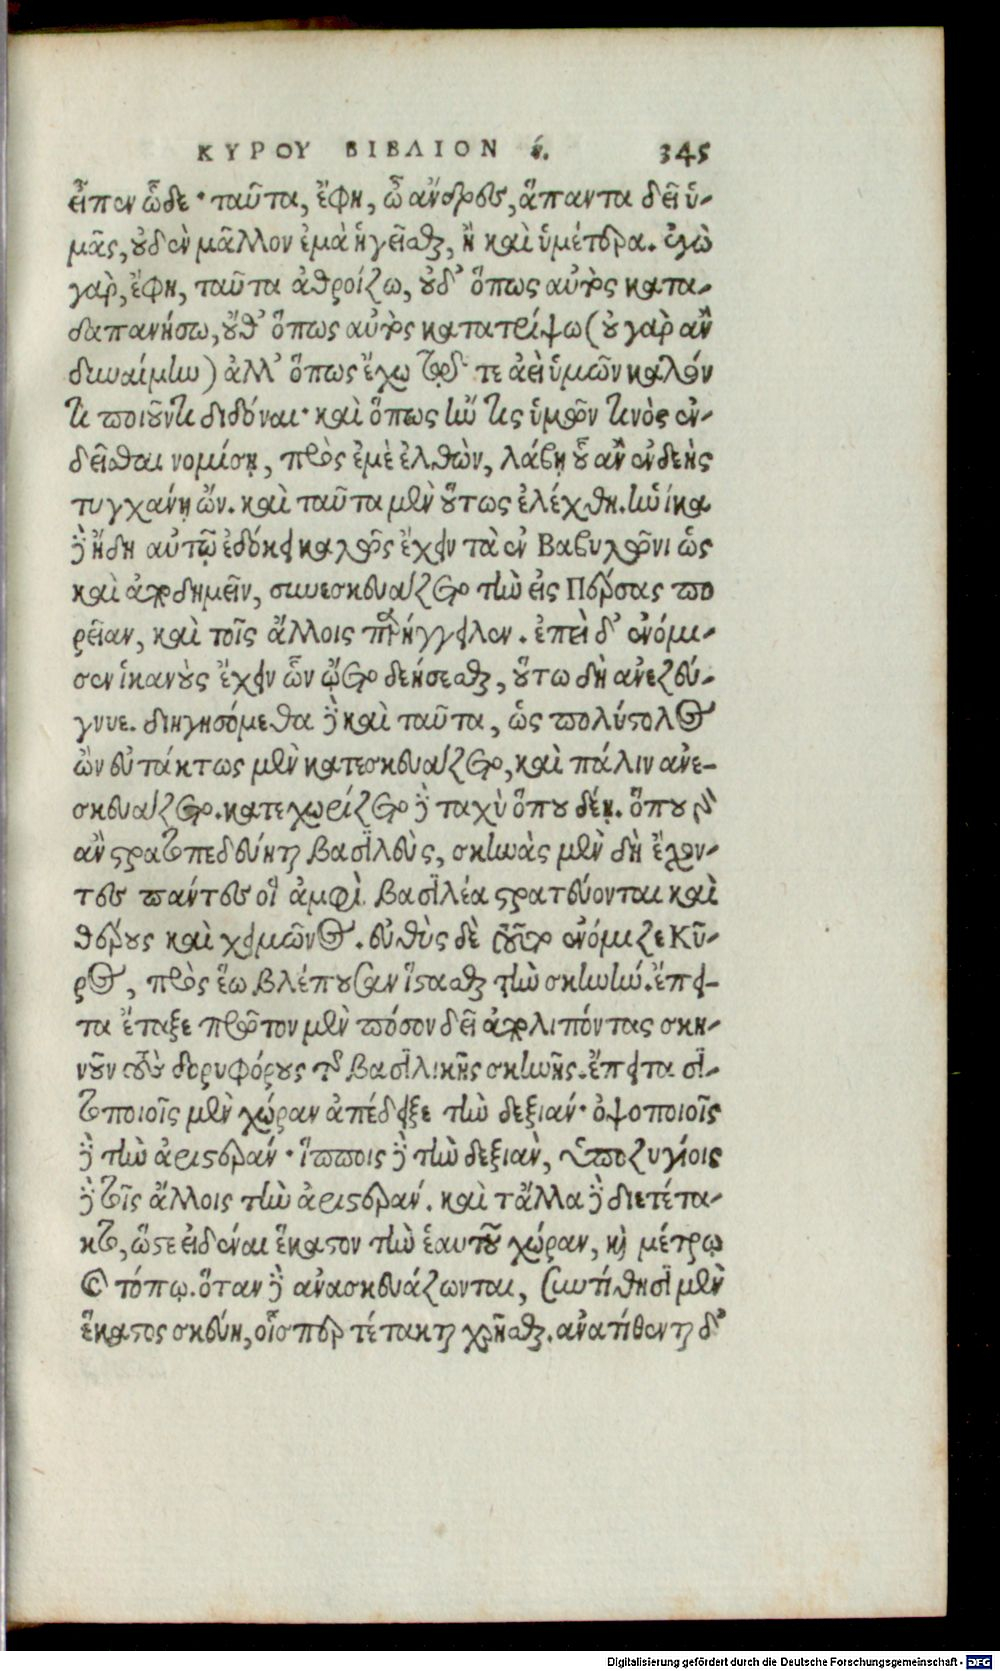 ΚΥΡΟΥ ΒΙΒΛΙΟΝ έ. 345
εἶπεν ὧδε· ταῦτα, ἔφη, ὦ ἄνδρες, ἅπαντα δεῖ ὑ-
μᾶς, οὐδὲν μᾶλλον ἐμὰ ἡγεῖσθαι, ἢ καὶ ὑμέτερα. ἐγὼ
γὰρ, ἔφη, ταῦτα ἀθροίζω, οὐδ' ὅπως αὐτὸς κατα-
δαπανήσω, οὔθ' ὅπως αὐτὸς κατατρίψω (οὐ γὰρ ἂν
δυναίμην) ἀλλ' ὅπως ἔχω τῷδέ τε ἀεὶ ὑμῶν καλόν
τι ποιοῦντι διδόναι· καὶ ὅπως ἤν τις ὑμῶν τινὸς ἐν-
δεῖσθαι νομίσῃ, πρὸς ἐμὲ ἐλθὼν, λάβῃ οὗ ἂν ἐνδεὴς
τυγχάνῃ ὤν. καὶ ταῦτα μὲν οὕτως ἐλέχθη. ἡνίκα
δὲ ἤδη αὐτῷ ἐδόκει καλῶς ἔχειν τὰ ἐν Βαβυλῶνι ὡς
καὶ ἀποδημεῖν, συνεσκευάζετο τὴν εἰς Πέρσας πο
ρείαν, καὶ τοῖς ἄλλοις παρήγγειλεν. ἐπεὶ δ' ἐνόμι-
σεν ἱκανοὺς ἔχειν ὧν ᾤετο δεήσεσθαι, οὕτω δὴ ἀνεζεύ-
γνυε. διηγησόμεθα δὲ καὶ ταῦτα, ὡς πολύστολος
ὢν εὐτάκτως μὲν κατεσκευάζετο, καὶ πάλιν ἀνε-
σκευάζετο. κατεχωρίζετο δὲ ταχὺ ὅπου δέῃ. ὅπου δ'
ἂν στρατοπεδεύηται βασιλεὺς, σκηνὰς μὲν δὴ ἔχον-
τες πάντες οἱ ἀμφὶ βασιλέα στρατεύονται καὶ
θέρους καὶ χειμῶνος. εὐθὺς δὲ τοῦτο ἐνόμιζε Κῦ-
ρος, πρὸς ἕω βλέπουσαν ἵστασθαι τὴν σκηνήν. ἔπει-
τα ἔταξε πρῶτον μὲν πόσον δεῖ ἀπολιπόντας σκη-
νοῦν τοὺς δορυφόρους τῆς βασιλικῆς σκηνῆς. ἔπειτα σι-
τοποιοῖς μὲν χώραν ἀπέδειξε τὴν δεξιάν· ὀψοποιοῖς
δὲ τὴν ἀριστεράν· ἵπποις δὲ τὴν δεξιὰν, ὑποζυγίοις
δὲ τοῖς ἄλλοις τὴν ἀριστεράν. καὶ τἄλλα δὲ διετέτα-
κτο, ὥστε εἰδέναι ἕκαστον τὴν ἑαυτοῦ χώραν, καὶ μέτρῳ
καὶ τόπῳ. ὅταν δὲ ἀνασκευάζωνται, συντίθησι μὲν
ἕκαστος σκεύη, οἷσπερ τέτακται χρῆσθαι. ἀνατίθενται δ'
Digitalisierung gefördert durch die Deutsche Forschungsgemeinschaft - DFG